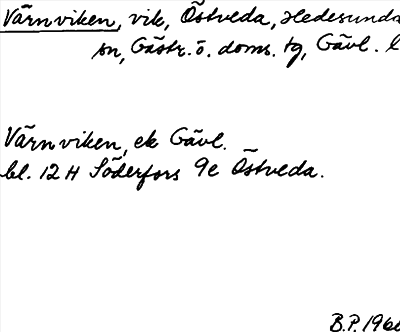 Värnviken, vik, Östveda, Hedesunda
sn, Gästr. ö. doms. tg, Gävl. l
Värnviken, ek Gävl.
bl. 12 H Söderfors 9e Östveda.
B.P. 196